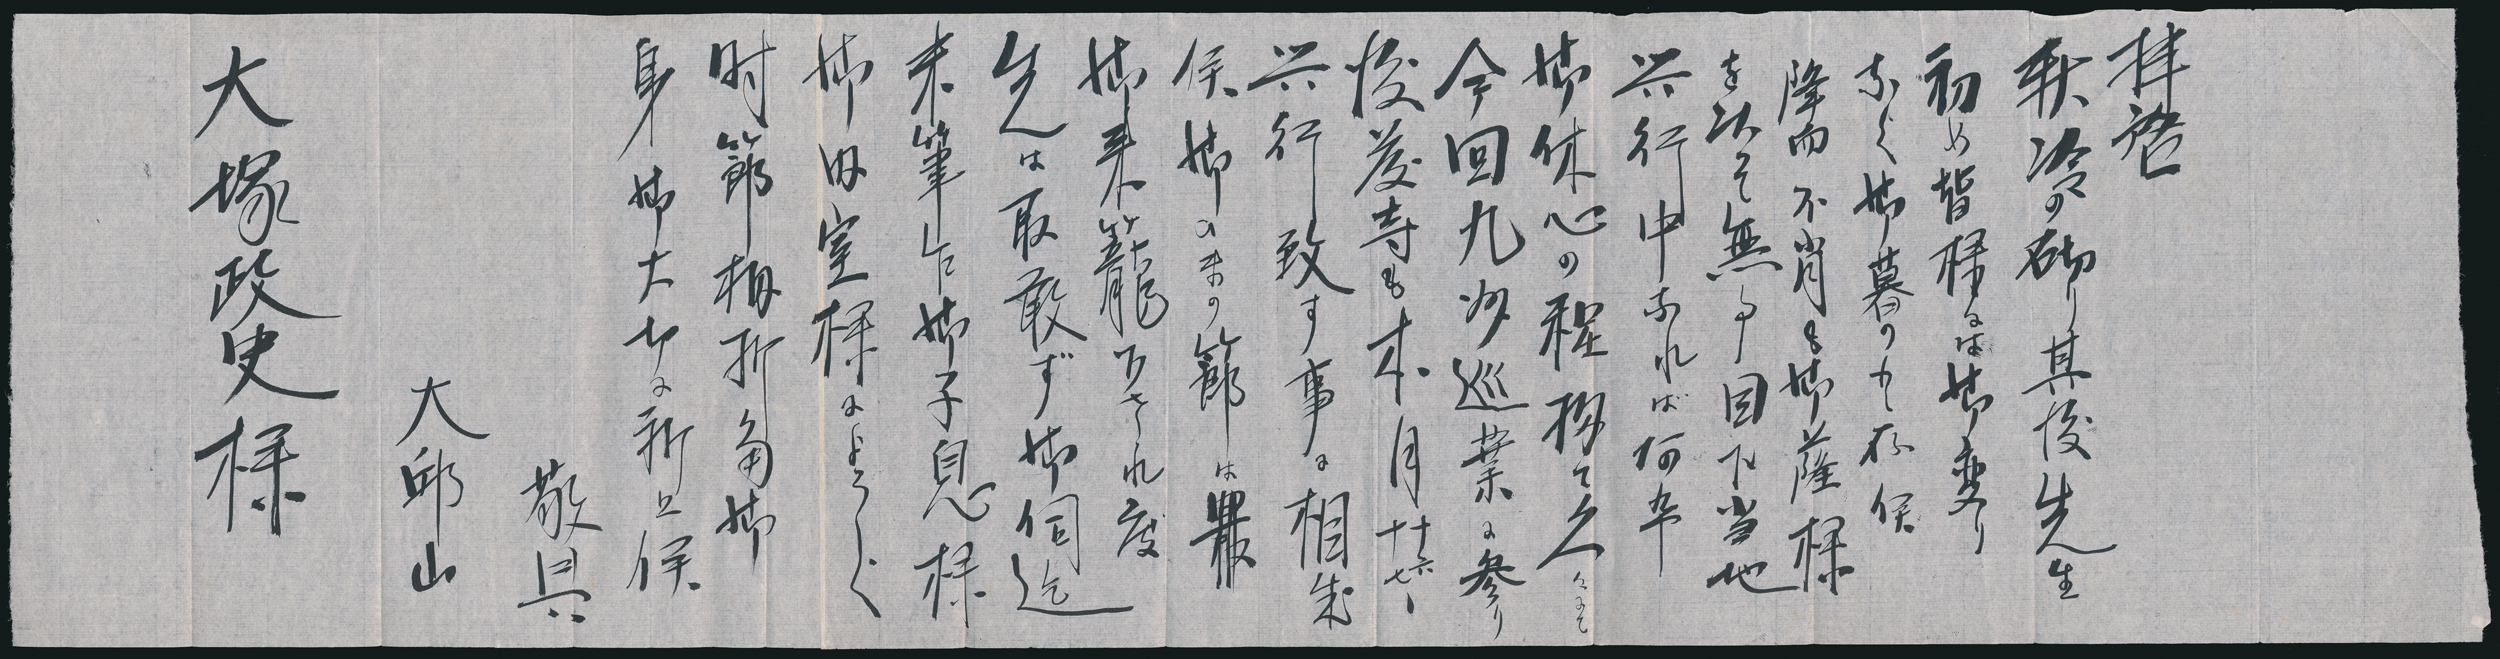 拝啓
秋冷の砌り其後先生
初め皆様には御変り
なく御暮のむね存候
降而不肖も御蔭様
を以て無事目下当地
興行中なれば何卒
御休心の程 扨て久々にて
今回九州巡業に参り
後 寺も本月十六十七日
興行致す事に相成
候 御ひまの節は是非
御来 下され度
先は取敢ず御伺迄
末筆乍御子息様
御母室様によろしく
時節柄折角御
身御大切に祈上候
敬具
大邱山
大塚政史様